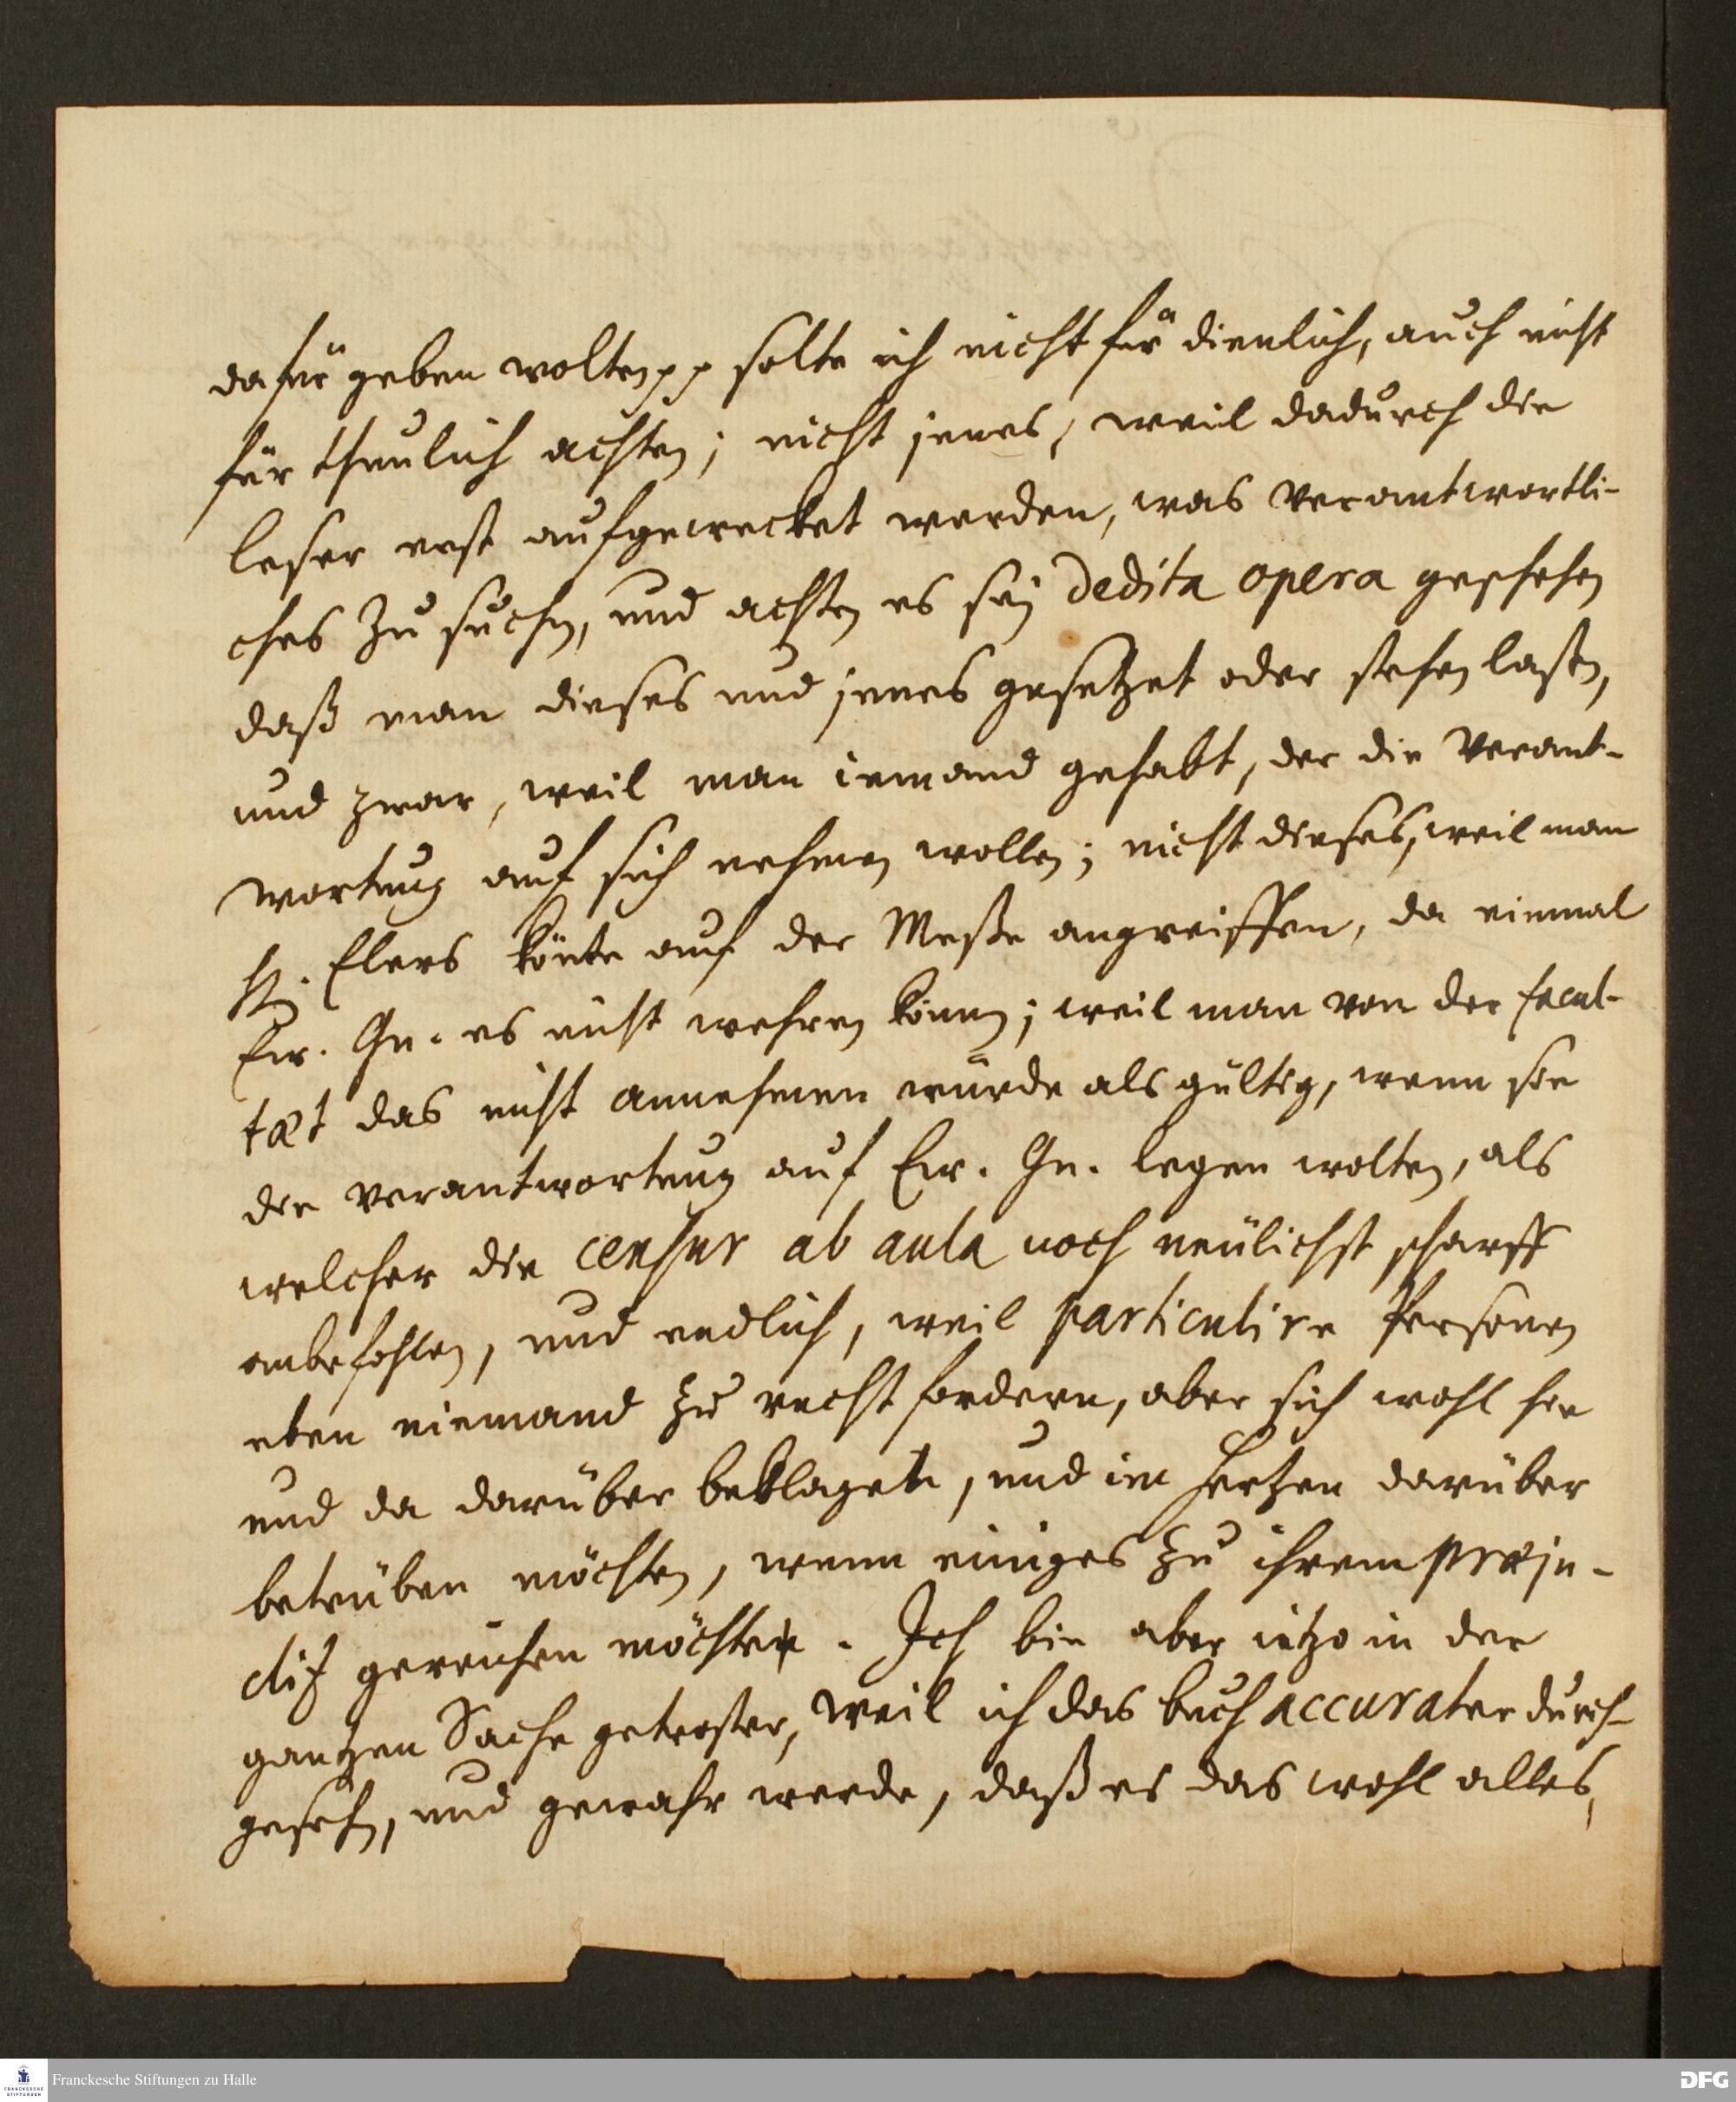 dafür geben wolten pp solte ich nicht für dienlich, auch nicht
für thunlich achten; nicht jenes, weil dadurch die
leser erst aufgewecket werden, was verantwortli-
ches zu suchen, und achten es sey dedita opera geschehen
daß man dieses und jenes gesetzet oder stehen laßen,
und zwar, weil man iemand gehabt, der die Verant-
wortung auf sich nehmen wollen; nicht dieses, weil man
H. Elers könte auf der Meße angreiffen, da einmal
Ew. Gn. es nicht wehren können; weil man von der facul-
tæt das nicht annehmen würde als gültig, wenn sie
die verantwortung auf Ew. Gn. legen wolten, als
welcher die censur ab aula noch neülichst scharff
anbefohlen, und endlich, weil particulire Personen
eben niemand zu recht fordern, aber sich wohl hie
und da darüber beklagen, und im Hertzen darüber
betrüben möchten, wenn einiges zu ihrem præju-
diz gereichen möchte. Ich bin aber ietzo in der
gantzen Sache getroster, weil ich das buch accurater durch-
gesehen, und gewahr werde, daß es das wohl alles,
Franckesche Stiftungen zu Halle
FRANCKESCHE
STIFTUNGEN
DFG